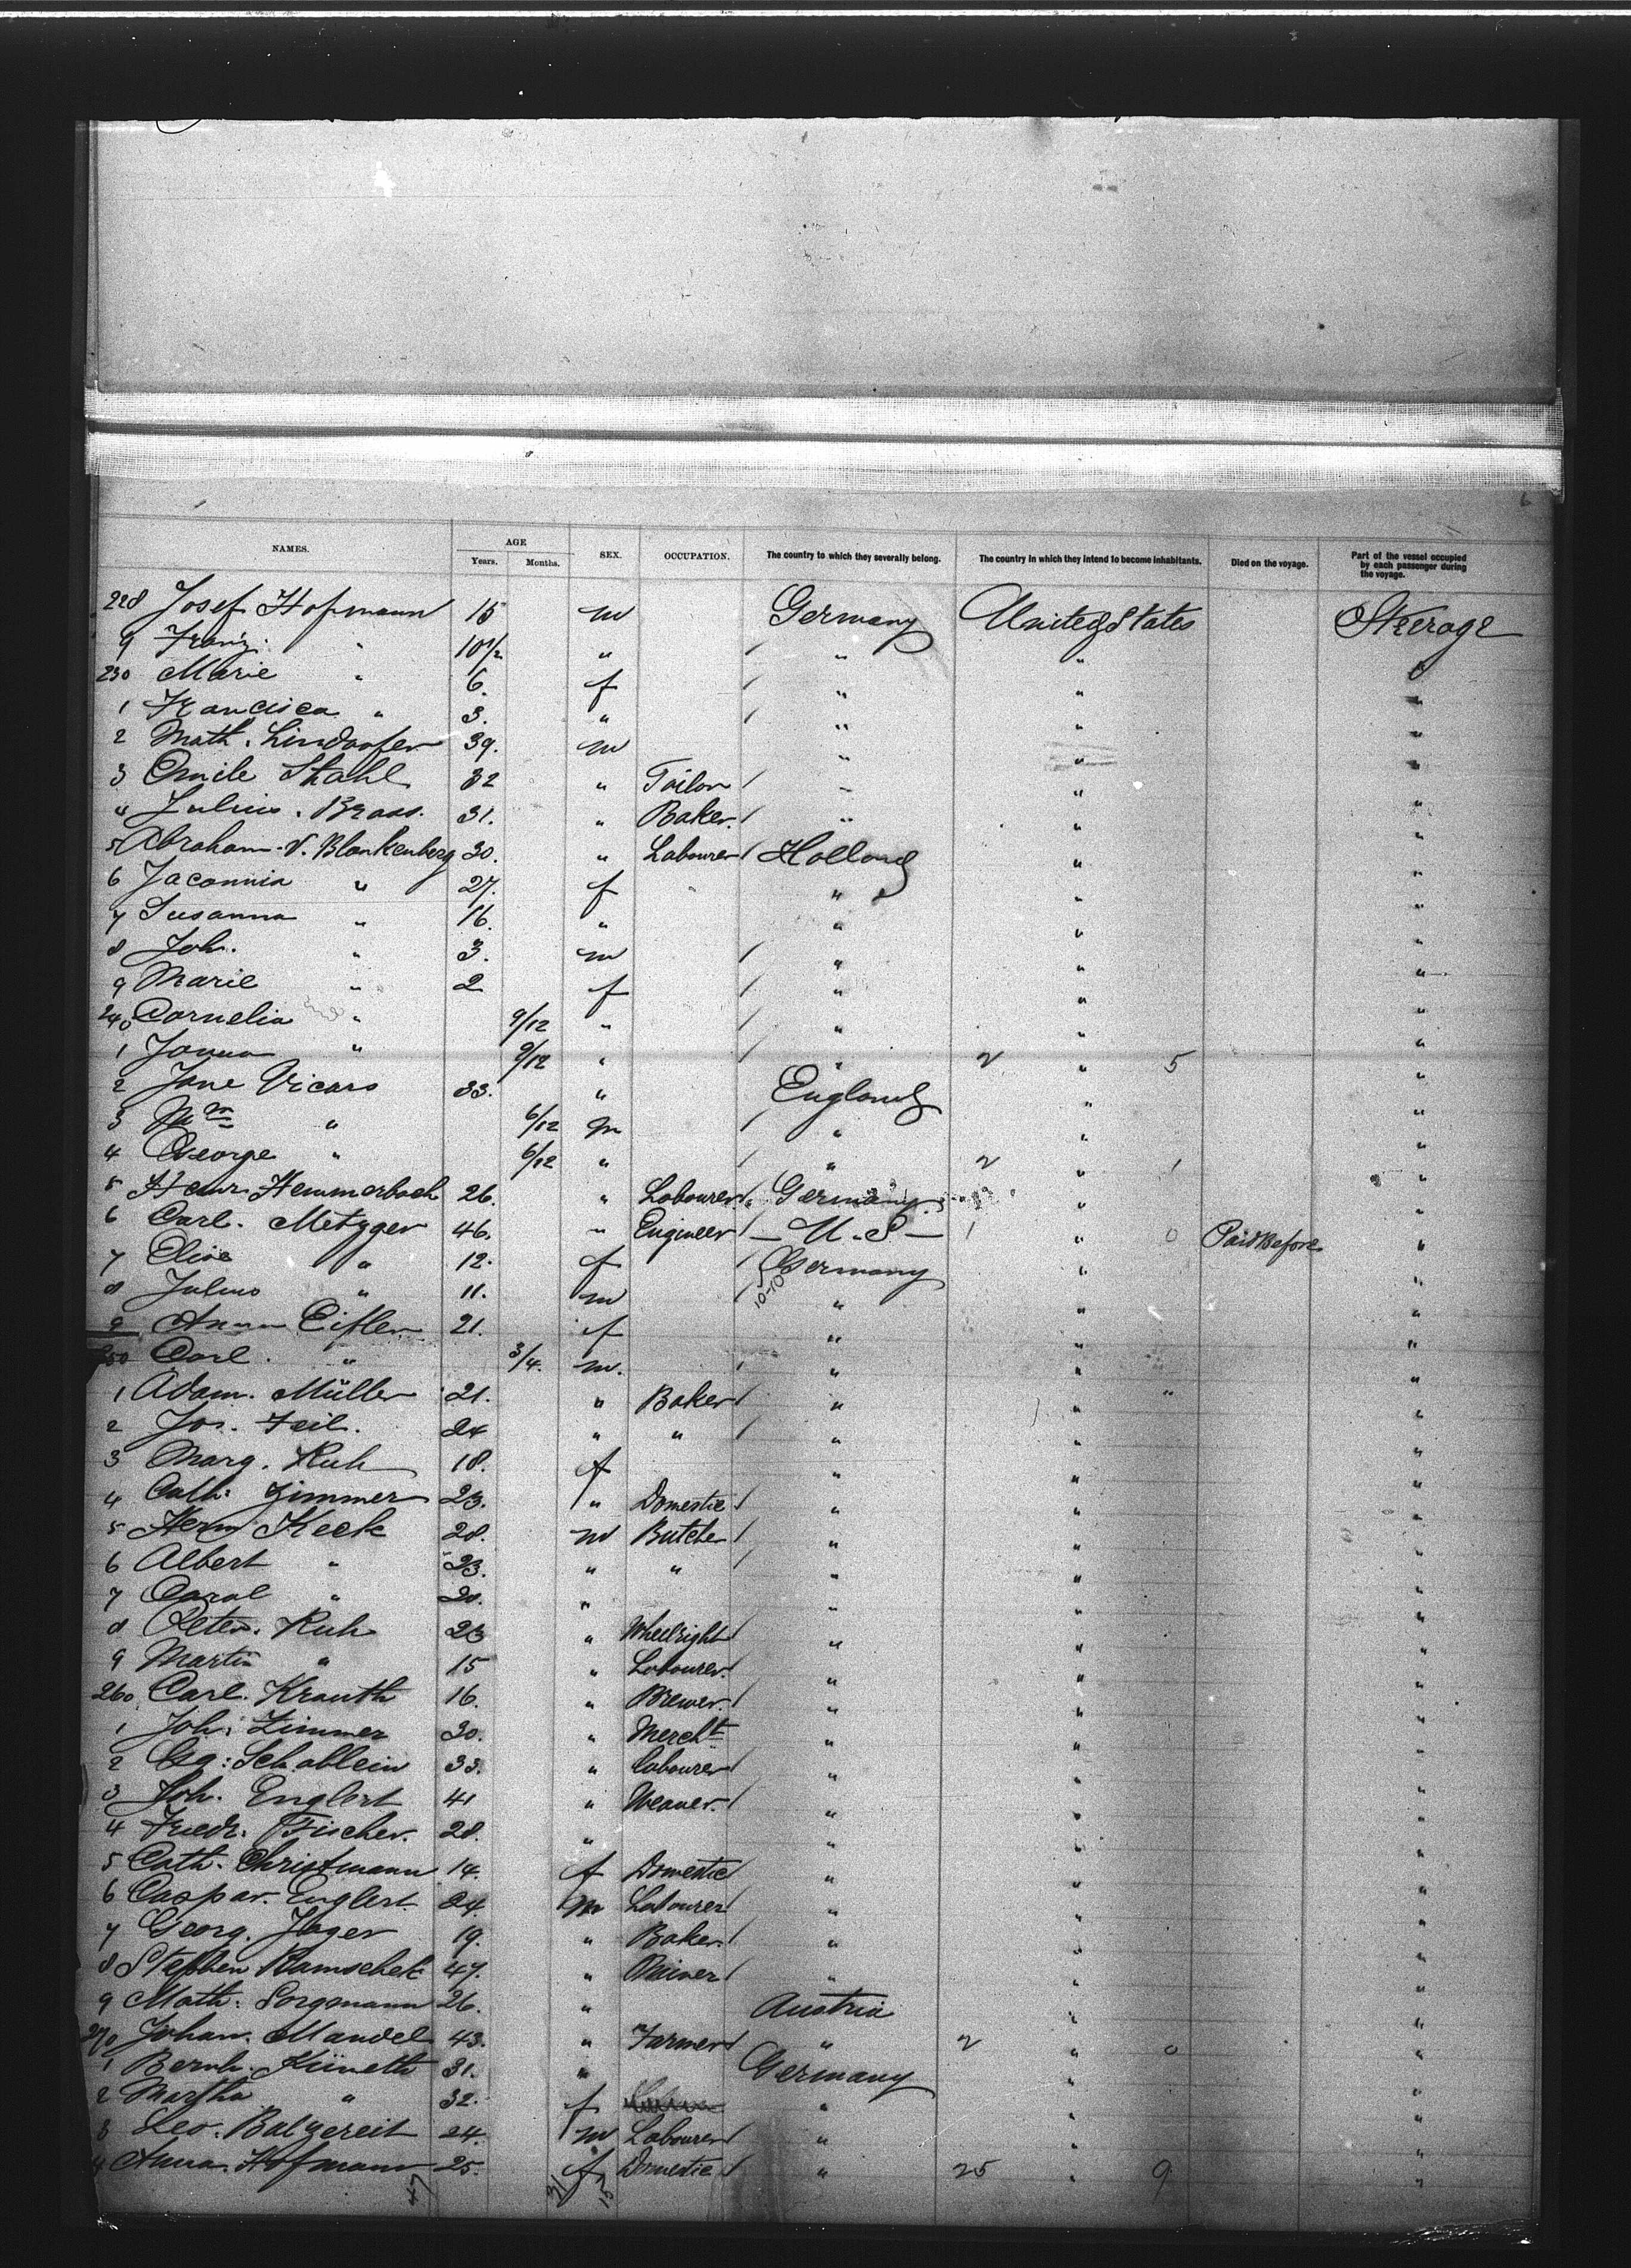 6
NAMES. AGE Years. Months. SEX. OCCUPATION. The country to which they severally belong. The country in which they intend to become inhabitants. Died on the voyage. Part of the vessel occupied by each passenger during the voyage.
228 Josef Hofmann 15 m Germany United States Steerage
9 Franz " 10 1/2 " / " " "
230 Marie " 6. f / " " "
1 Francisca " 3. " / " " "
2 Math. Lindorfer 39. m " " "
3 Emile Stahl 32 " Tailor / " " "
4 Julius. Brass. 31. " Baker. / " " "
5 Abraham. V. Blankenberg 30. " Labourer / Holland " "
6 " 27. f " " "
7 Susanna " 16. " " " "
8 Joh. " 3. m / " " "
9 Marie " 2 f / " " "
240 Cornelia " 9/12 " / " " "
1 " 9/12 " / " 2 " 5 "
2 Jane Vicars 33. " England " "
3 Wm " 6/12 m / " " "
4 George " 6/12 " / " 2 " 1 "
5 Heinr. Hemmerbach 26. " Labourer / Germany " "
6 Carl. Metzger 46. " Engineer / - U.S - 1 " 0 Paid Before "
7 Elise " 12. f / Germany " "
8 Julius " 11. m / 10-10 " " "
9 Anna Eifler 21. f " " "
250 Carl. " 3/4. m. / " " "
1 Adam. Müller 21. " Baker / " " "
2 Jos. Feil. 24 " " / " " "
3 Marg. Kuh 18. f " " "
4 Cath: Zimmer 23. " Domestic / " " "
5 Herm. Keck 28. m Butcher / " " "
6 Albert " 23. " " / " " "
7 Carol " 20. " " " "
8 Peter. Kuh 23 " Wheelright / " " "
9 Martin " 15 " Labourer. / " " "
260 Carl. Krauth 16. " Brewer. / " " "
1 Joh: Zimmer 30. " Mercht / " " "
2 Gg: Schablein 33. " Labourer / " " "
3 Joh. Englert 41 " Weaver. / " " "
4 Friedr. Fischer. 28. " " " "
5 Cath. Christmann 14. f Domestic / " " "
6 Caspar. Englert 24. m Labourer / " " "
7 Georg. Jager 19. " Baker. / " " "
8 Stephen Ramschek 47. " Miner / " " "
9 Math: Sorgmann 26. " Austria " "
270 Johan. Mandel 43. " Farmer / " 2 " 0 "
1 Bernh. Küneth 31. " Germany " "
2 Martha " 32. f " " "
3 Leo. Balzereit 24. m Labourer / " " "
4 Anna. Hofmann 25. f Domestic / " 25 " 9 "
47 31 15